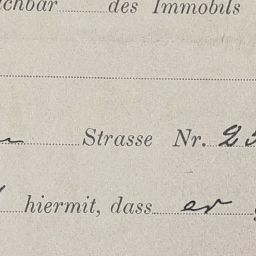 des Immobils
Strasse Nr.
hiermit, dass er